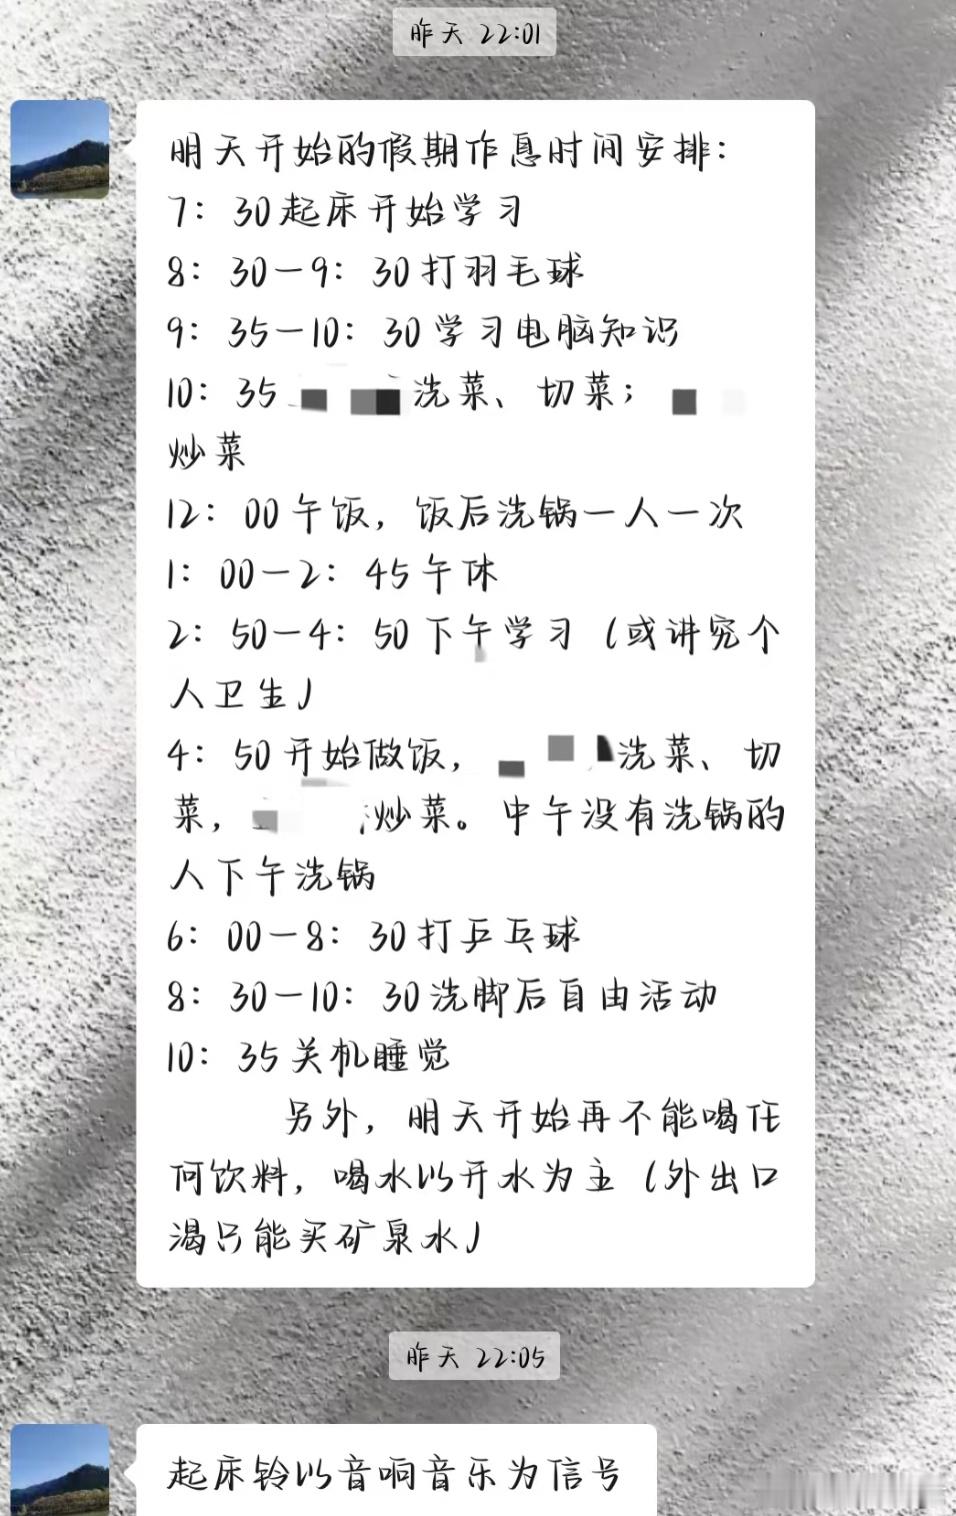 昨天 22:01
明天开始的假期作息时间安排：
7：30起床开始学习
8：30－9：30打羽毛球
9：35－10：30学习电脑知识
10：35 洗菜、切菜；
炒菜
12：00午饭，饭后洗锅一人一次
1：00－2：45午休
2：50－4：50下午学习（或讲究个
人卫生）
4：50开始做饭， 洗菜、切
菜， 炒菜。中午没有洗锅的
人下午洗锅
6：00－8：30打乒乓球
8：30－10：30洗脚后自由活动
10：35关机睡觉
另外，明天开始再不能喝任
何饮料，喝水以开水为主（外出口
渴只能买矿泉水）
昨天 22:05
起床铃以音响音乐为信号